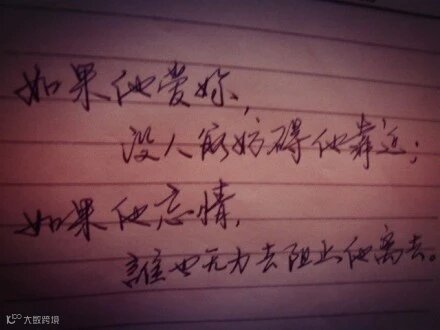 如果他爱妳,
没人能妨碍他靠近;
如果他忘情,
誰也无力去阻止他离去。
大数跨境